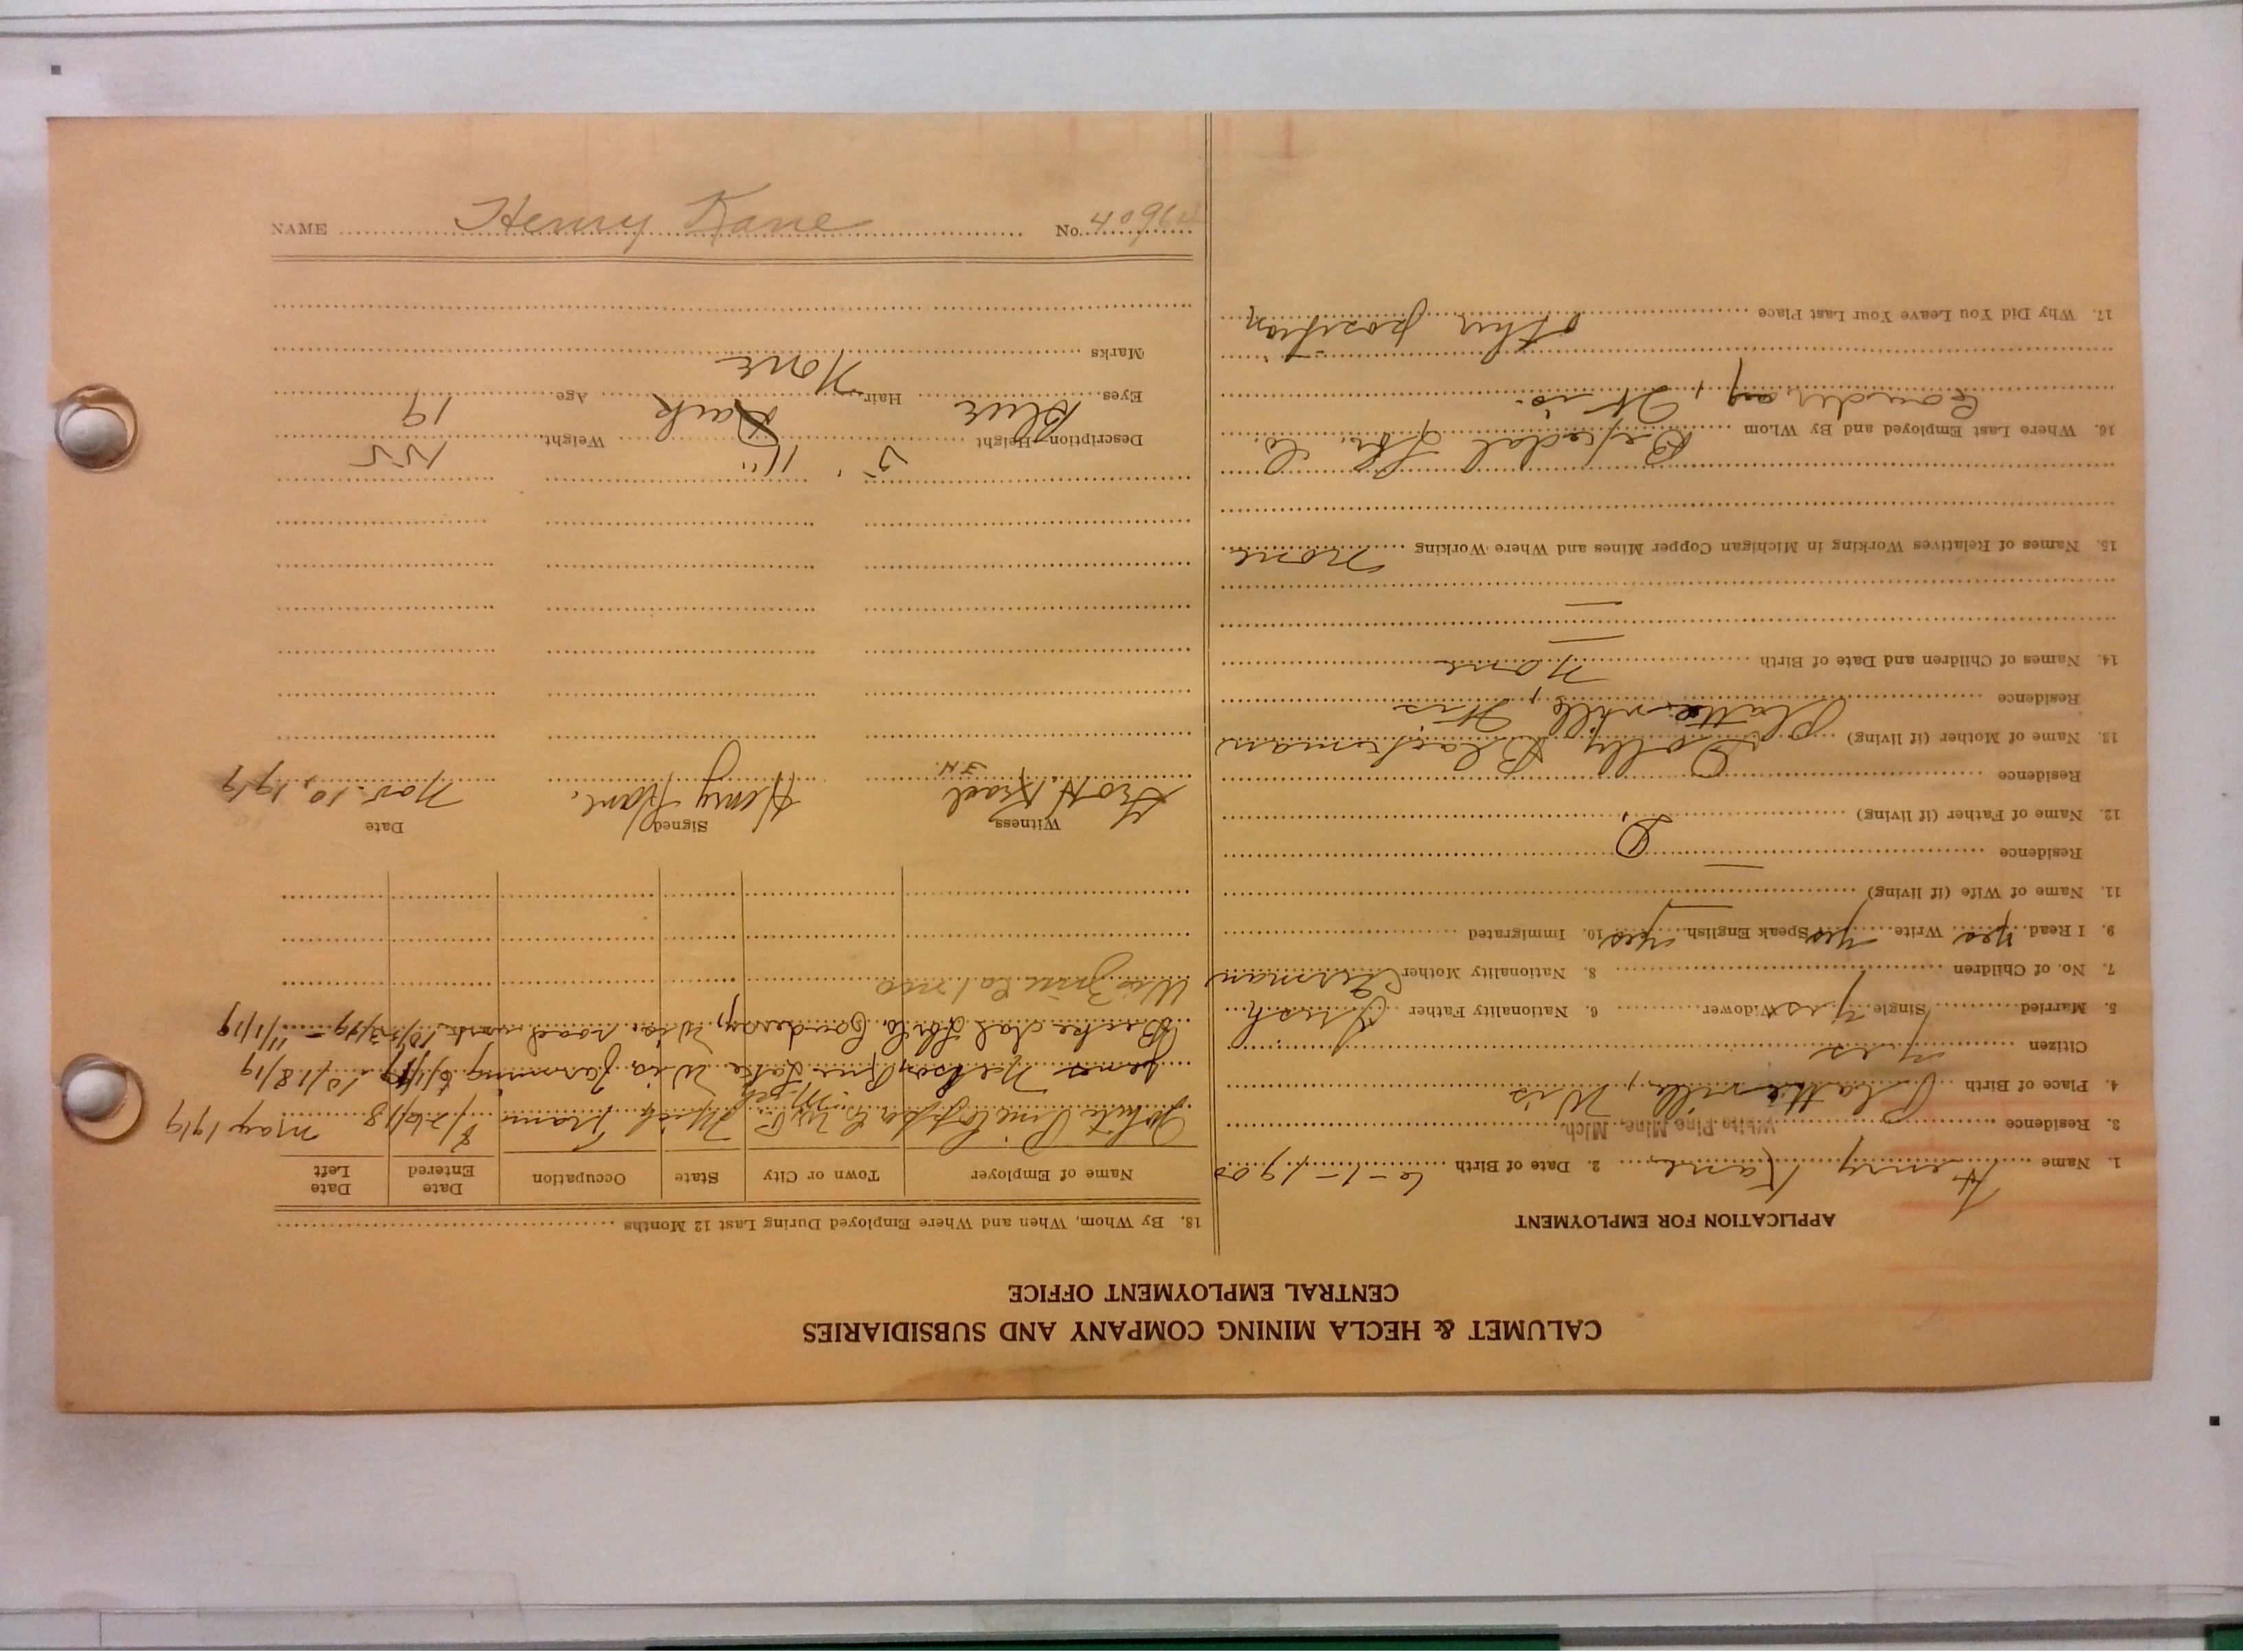 CALUMET & HECLA MINING COMPANY AND SUBSIDIARIES
CENTRAL EMPLOYMENT OFFICE
APPLICATION FOR EMPLOYMENT
1. Name Henry Kane 2. Date of Birth 6-1-1900
3. Residence White Pine Mine, Mich.
4. Place of Birth Platteville, Wis
Citizen yes
5. Married Single yes Widower 6. Nationality Father Irish
7. No. of Children 8. Nationality Mother German
9. I Read yes Write yes Speak English yes 10. Immigrated
11. Name of Wife (if living) —
Residence —
12. Name of Father (if living) D.
Residence
13. Name of Mother (if living) Dolly Blackman
Residence Platteville, Wis
14. Names of Children and Date of Birth None
15. Names of Relatives Working in Michigan Copper Mines and Where Working None
16. Where Last Employed and By Whom Lbr. Co.
Couderay, Wis.
17. Why Did You Leave Your Last Place other position
18. By Whom, When and Where Employed During Last 12 Months
Name of Employer Town or City State Occupation Date Entered Date Left
White Pine Mich Tram 8/26/18 May 1919
James Nelson Rice Lake Wis Farming 6/1/19 10/18/19
Lbr. Co. Couderay, Wis. road work 10/23/19 - 11/1/19
Wis Zinc
Witness Signed Date
Geo H. Henry Kane. Nov. 10, 1919
J.H.
Description—Height 5' 11" Weight 155
Eyes Blue Hair Dark Age 19
Marks None
NAME Henry Kane No. 40964